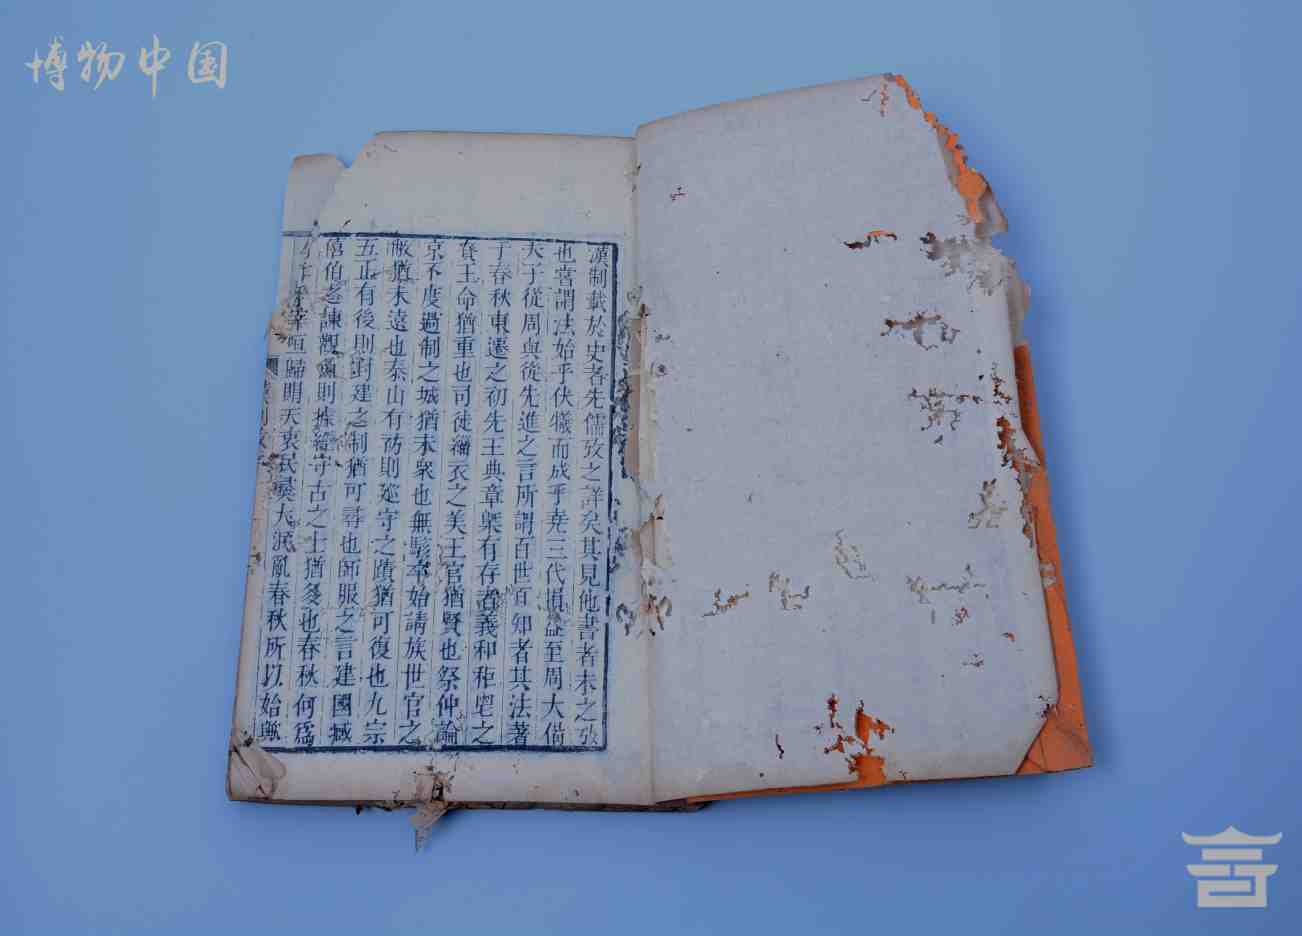 博物中国
漢制載於史者先儒攷之詳矣其見他書者未之攷
也嘗謂法始乎伏犧而成乎堯三代損益至周大備
夫子從周與從先進之言所謂百世可知者其法著
于春秋東遷之初先王典章槩有存者義和秬鬯之
賚王命猶重也司徒緇衣之美王官猶賢也祭仲論
京不度過制之城猶未衆也無駭卒始請族世官之
敝猶未遠也泰山有祊則廵守之蹟猶可復也九宗
五正有後則封建之制猶可尋也師服之言建國臧
僖伯之諫觀魚則據經守古之士猶多也春秋何爲
宰咺歸賵天衷民彝大泯亂春秋所以始與